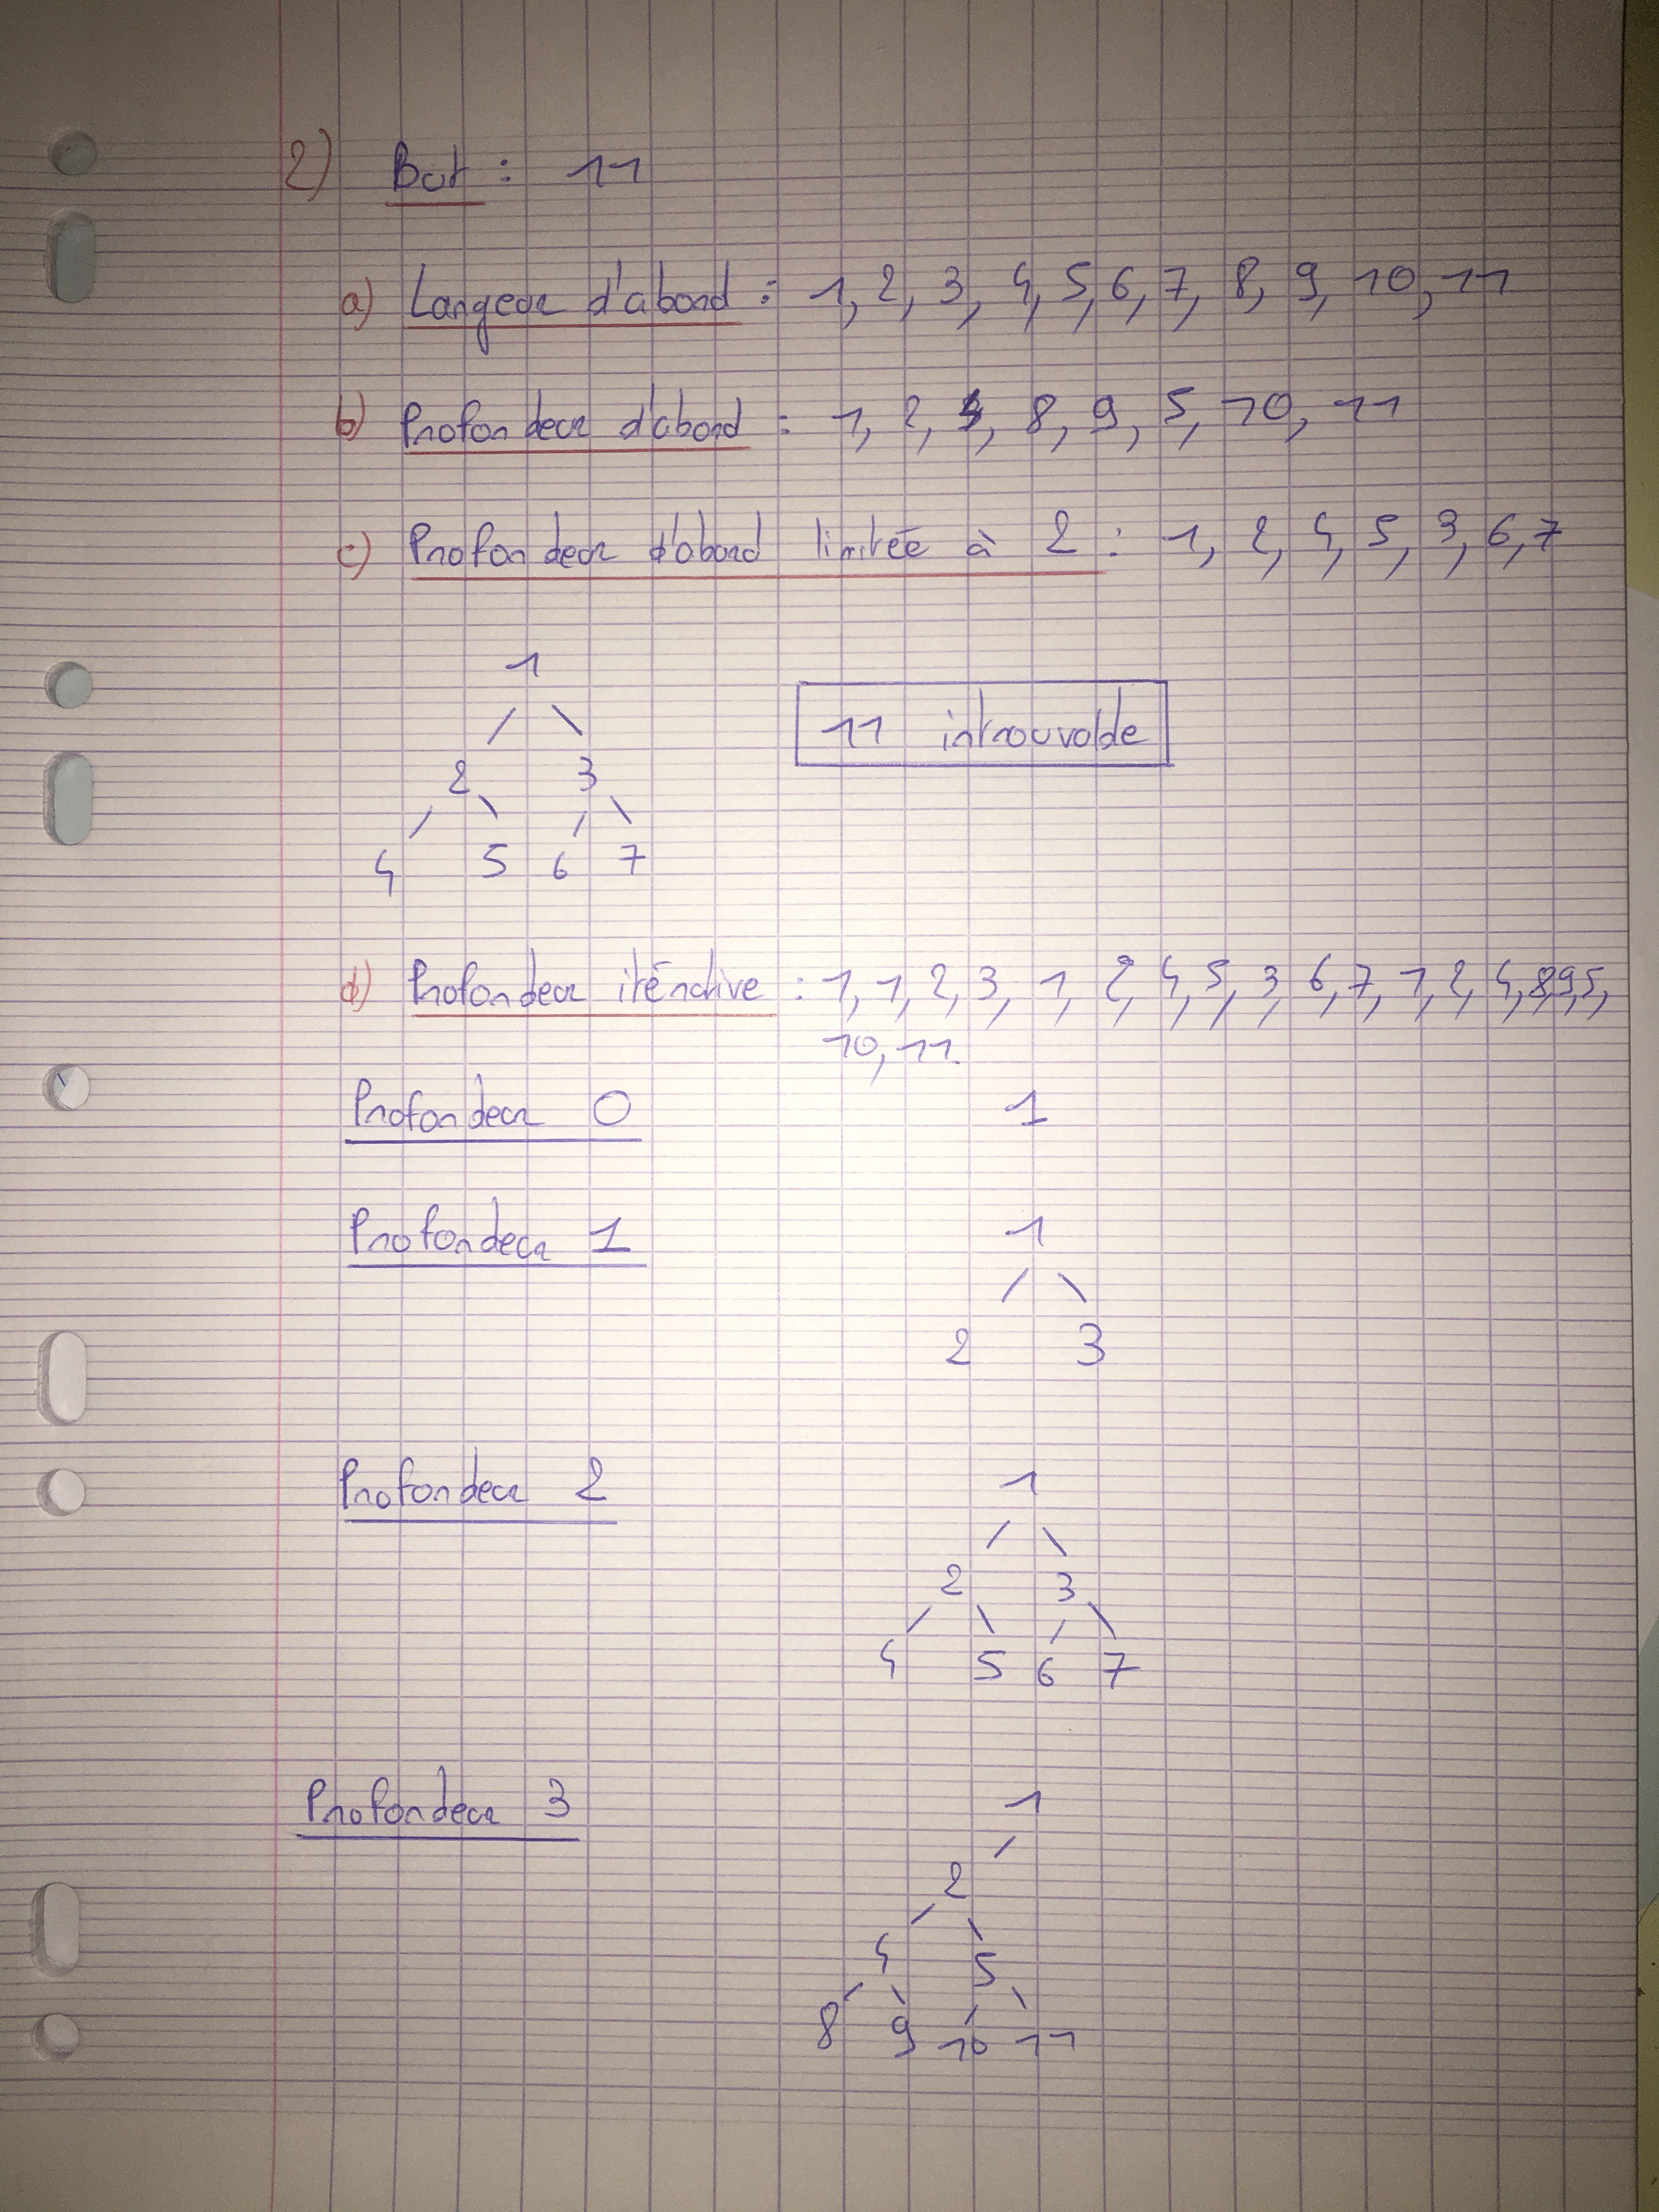 2) But : 11
a) Largeur d'abord : 1, 2, 3, 4, 5, 6, 7, 8, 9, 10, 11
b) Profondeur d'abord : 1, 2, 4, 8, 9, 5, 10, 11
c) Profondeur d'abord limitée à 2 : 1, 2, 4, 5, 3, 6, 7
1
11 introuvable
2 3
4 5 6 7
d) Profondeur itérative : 1, 1, 2, 3, 1, 2, 4, 5, 3, 6, 7, 1, 2, 4, 8, 9, 5,
10, 11.
Profondeur 0 1
Profondeur 1 1
2 3
Profondeur 2 1
2 3
4 5 6 7
Profondeur 3 1
2
4 5
8 9 10 11